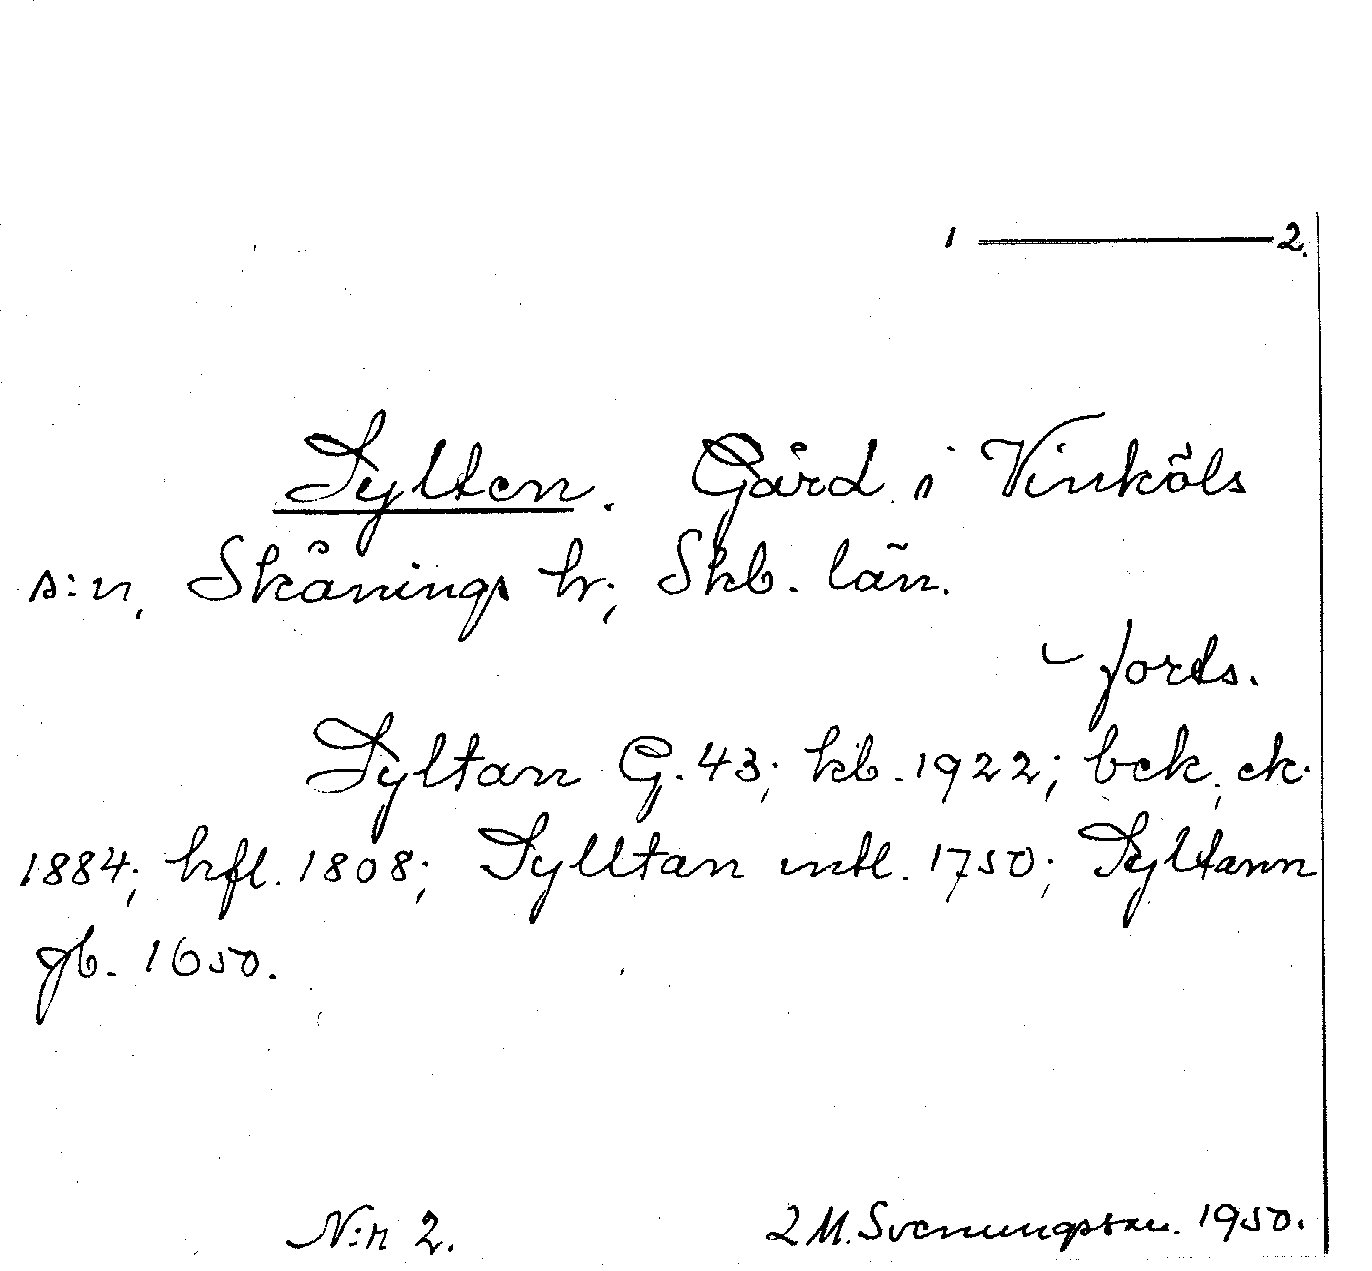 1 ——— 2.
Sylten. Gård i Vinköls
s:n, Skånings hr; Skb. län.
– forts.
Syltan G. 43; kb. 1922; bek. ek.
1884; hfl. 1808; Sylltan mtl. 1750; Syltann
jb. 1650.
N:r 2. 2 M. Svenungsson. 1950.